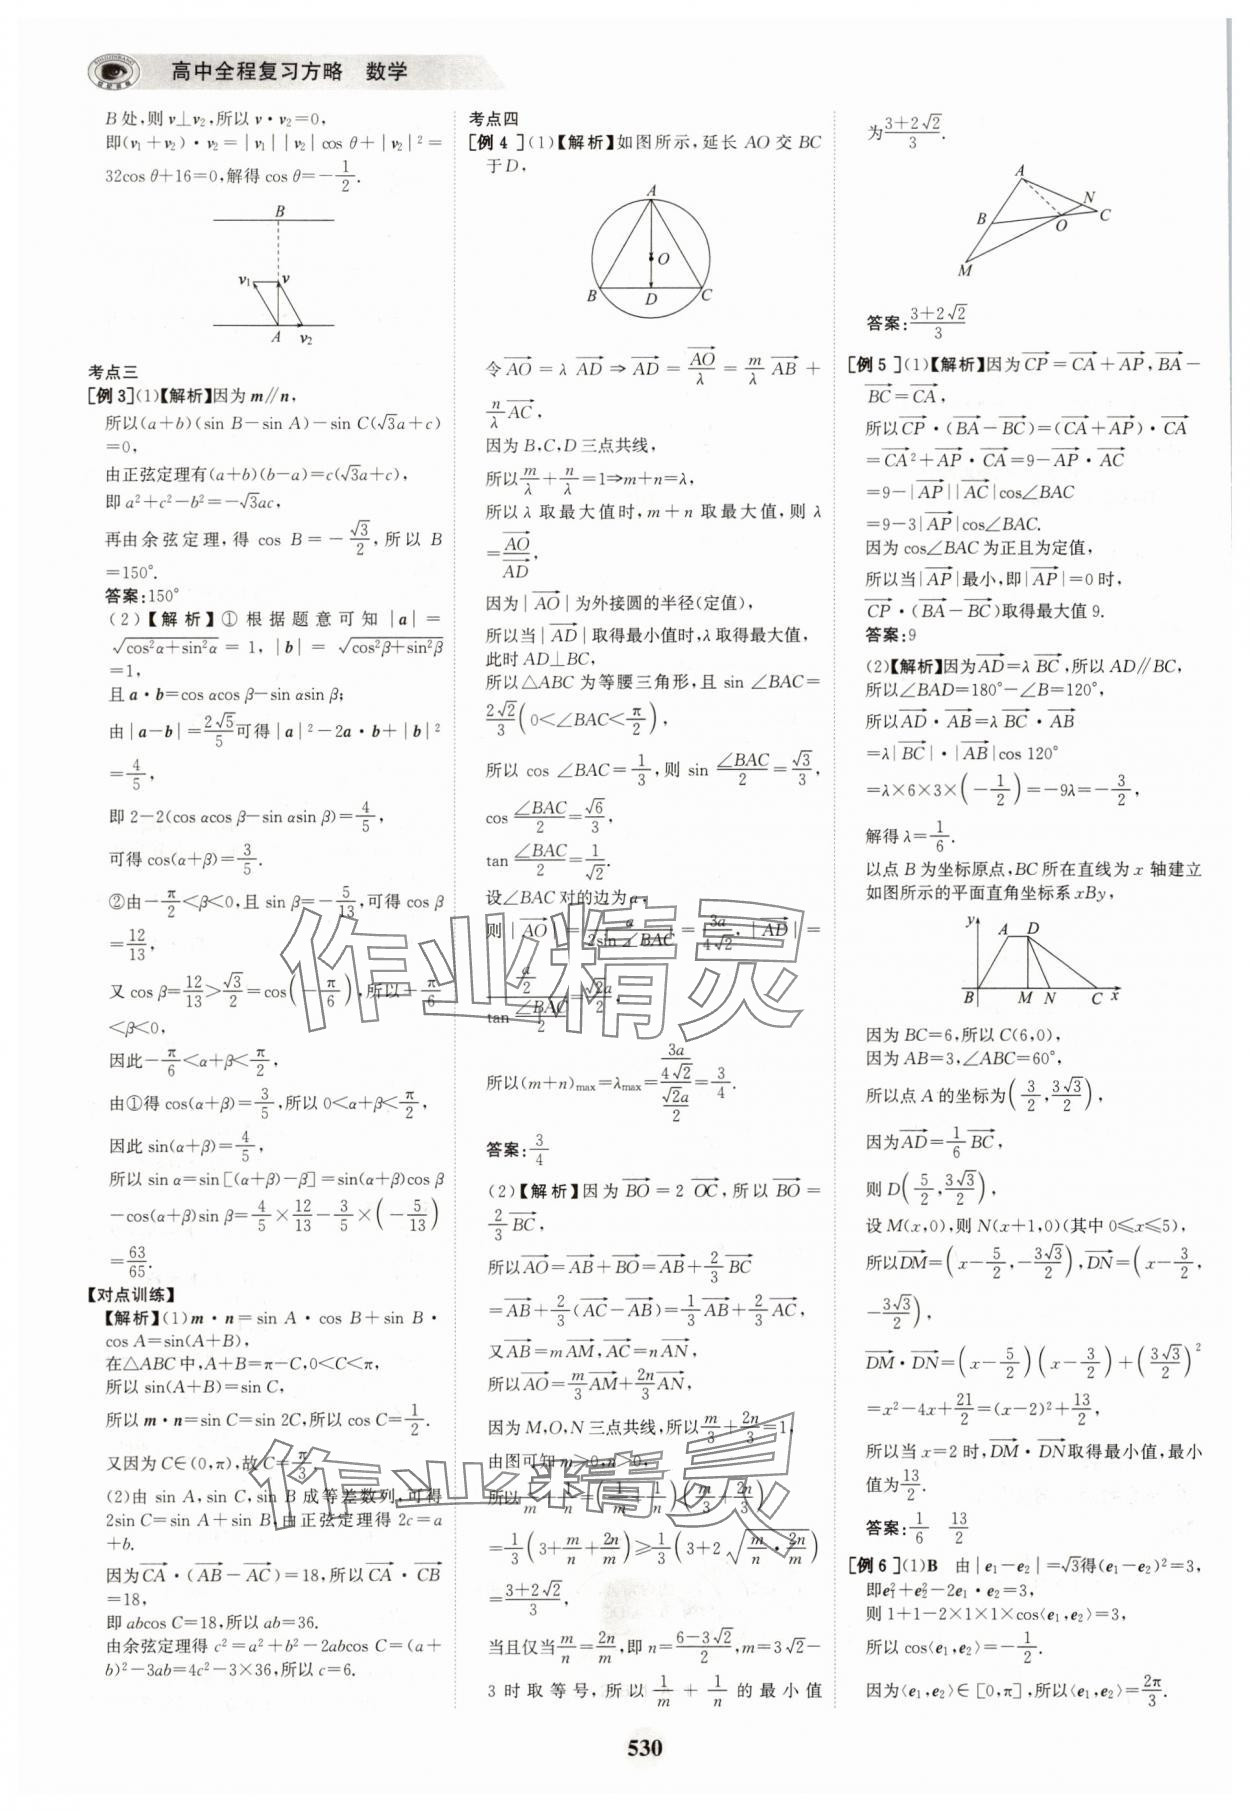 高中全程复习方略 数学
B处,则v⊥v₂,所以v·v₂=0,
即(v₁+v₂)·v₂=|v₁||v₂|cos θ+|v₂|²=
32cos θ+16=0,解得cos θ=-1/2.
B
v₁ v
A v₂
考点三
[例3](1)【解析】因为m∥n,
所以(a+b)(sin B-sin A)-sin C(√3a+c)
=0,
由正弦定理有(a+b)(b-a)=c(√3a+c),
即a²+c²-b²=-√3ac,
再由余弦定理,得cos B=-√3/2,所以B
=150°.
答案:150°
(2)【解析】①根据题意可知|a|=
√(cos²α+sin²α)=1,|b|=√(cos²β+sin²β)
=1,
且a·b=cos αcos β-sin αsin β;
由|a-b|=2√5/5可得|a|²-2a·b+|b|²
=4/5,
即2-2(cos αcos β-sin αsin β)=4/5,
可得cos(α+β)=3/5.
②由-π/2<β<0,且sin β=-5/13,可得cos β
=12/13,
又cos β=12/13>√3/2=cos(-π/6),所以-π/6
<β<0,
因此-π/6<α+β<π/2,
由①得cos(α+β)=3/5,所以0<α+β<π/2,
因此sin(α+β)=4/5,
所以sin α=sin[(α+β)-β]=sin(α+β)cos β
-cos(α+β)sin β=4/5×12/13-3/5×(-5/13)
=63/65.
【对点训练】
【解析】(1)m·n=sin A·cos B+sin B·
cos A=sin(A+B),
在△ABC中,A+B=π-C,0<C<π,
所以sin(A+B)=sin C,
所以m·n=sin C=sin 2C,所以cos C=1/2.
又因为C∈(0,π),故C=π/3.
(2)由sin A,sin C,sin B成等差数列,可得
2sin C=sin A+sin B,由正弦定理得2c=a+
b.
因为CA→·(AB→-AC→)=18,所以CA→·CB→
=18,
即abcos C=18,所以ab=36.
由余弦定理得c²=a²+b²-2abcos C=(a+
b)²-3ab=4c²-3×36,所以c=6.
考点四
[例4](1)【解析】如图所示,延长AO交BC
于D,
A
O
B D C
令AO→=λAD→⇒AD→=AO→/λ=m/λ AB→+
n/λ AC→,
因为B,C,D三点共线,
所以m/λ+n/λ=1⇒m+n=λ,
所以λ取最大值时,m+n取最大值,则λ
=AO→/AD→,
因为|AO→|为外接圆的半径(定值),
所以当|AD→|取得最小值时,λ取最大值,
此时AD⊥BC,
所以△ABC为等腰三角形,且sin ∠BAC=
2√2/3(0<∠BAC<π/2),
所以cos ∠BAC=1/3,则sin ∠BAC/2=√3/3,
cos ∠BAC/2=√6/3,
tan ∠BAC/2=1/√2.
设∠BAC对的边为a,
则|AO→|=a/(2sin ∠BAC)=3a/(4√2),|AD→|=
(a/2)/(tan ∠BAC/2)=√2a/2,
所以(m+n)max=λmax=(3a/(4√2))/(√2a/2)=3/4.
答案:3/4
(2)【解析】因为BO→=2OC→,所以BO→=
2/3 BC→,
所以AO→=AB→+BO→=AB→+2/3 BC→
=AB→+2/3(AC→-AB→)=1/3 AB→+2/3 AC→,
又AB→=mAM→,AC→=nAN→,
所以AO→=m/3 AM→+2n/3 AN→,
因为M,O,N三点共线,所以m/3+2n/3=1,
由图可知m>0,n>0,
所以1/m+1/n=(1/m+1/n)(m/3+2n/3)
=1/3(3+m/n+2n/m)≥1/3(3+2√(m/n·2n/m))
=(3+2√2)/3,
当且仅当m/n=2n/m,即n=(6-3√2)/2,m=3√2-
3时取等号,所以1/m+1/n的最小值
为(3+2√2)/3.
A
N
B C
O
M
答案:(3+2√2)/3
[例5](1)【解析】因为CP→=CA→+AP→,BA→-
BC→=CA→,
所以CP→·(BA→-BC→)=(CA→+AP→)·CA→
=CA→²+AP→·CA→=9-AP→·AC→
=9-|AP→||AC→|cos∠BAC
=9-3|AP→|cos∠BAC.
因为cos∠BAC为正且为定值,
所以当|AP→|最小,即|AP→|=0时,
CP→·(BA→-BC→)取得最大值9.
答案:9
(2)【解析】因为AD→=λBC→,所以AD∥BC,
所以∠BAD=180°-∠B=120°,
所以AD→·AB→=λBC→·AB→
=λ|BC→|·|AB→|cos 120°
=λ×6×3×(-1/2)=-9λ=-3/2,
解得λ=1/6.
以点B为坐标原点,BC所在直线为x轴建立
如图所示的平面直角坐标系xBy,
y A D
B M N C x
因为BC=6,所以C(6,0),
因为AB=3,∠ABC=60°,
所以点A的坐标为(3/2,3√3/2),
因为AD→=1/6 BC→,
则D(5/2,3√3/2),
设M(x,0),则N(x+1,0)(其中0≤x≤5),
所以DM→=(x-5/2,-3√3/2),DN→=(x-3/2,
-3√3/2),
DM→·DN→=(x-5/2)(x-3/2)+(3√3/2)²
=x²-4x+21/2=(x-2)²+13/2,
所以当x=2时,DM→·DN→取得最小值,最小
值为13/2.
答案:1/6 13/2
[例6](1)B 由|e₁-e₂|=√3得(e₁-e₂)²=3,
即e₁²+e₂²-2e₁·e₂=3,
则1+1-2×1×1×cos⟨e₁,e₂⟩=3,
所以cos⟨e₁,e₂⟩=-1/2.
因为⟨e₁,e₂⟩∈[0,π],所以⟨e₁,e₂⟩=2π/3.
作业精灵
作业精灵
530